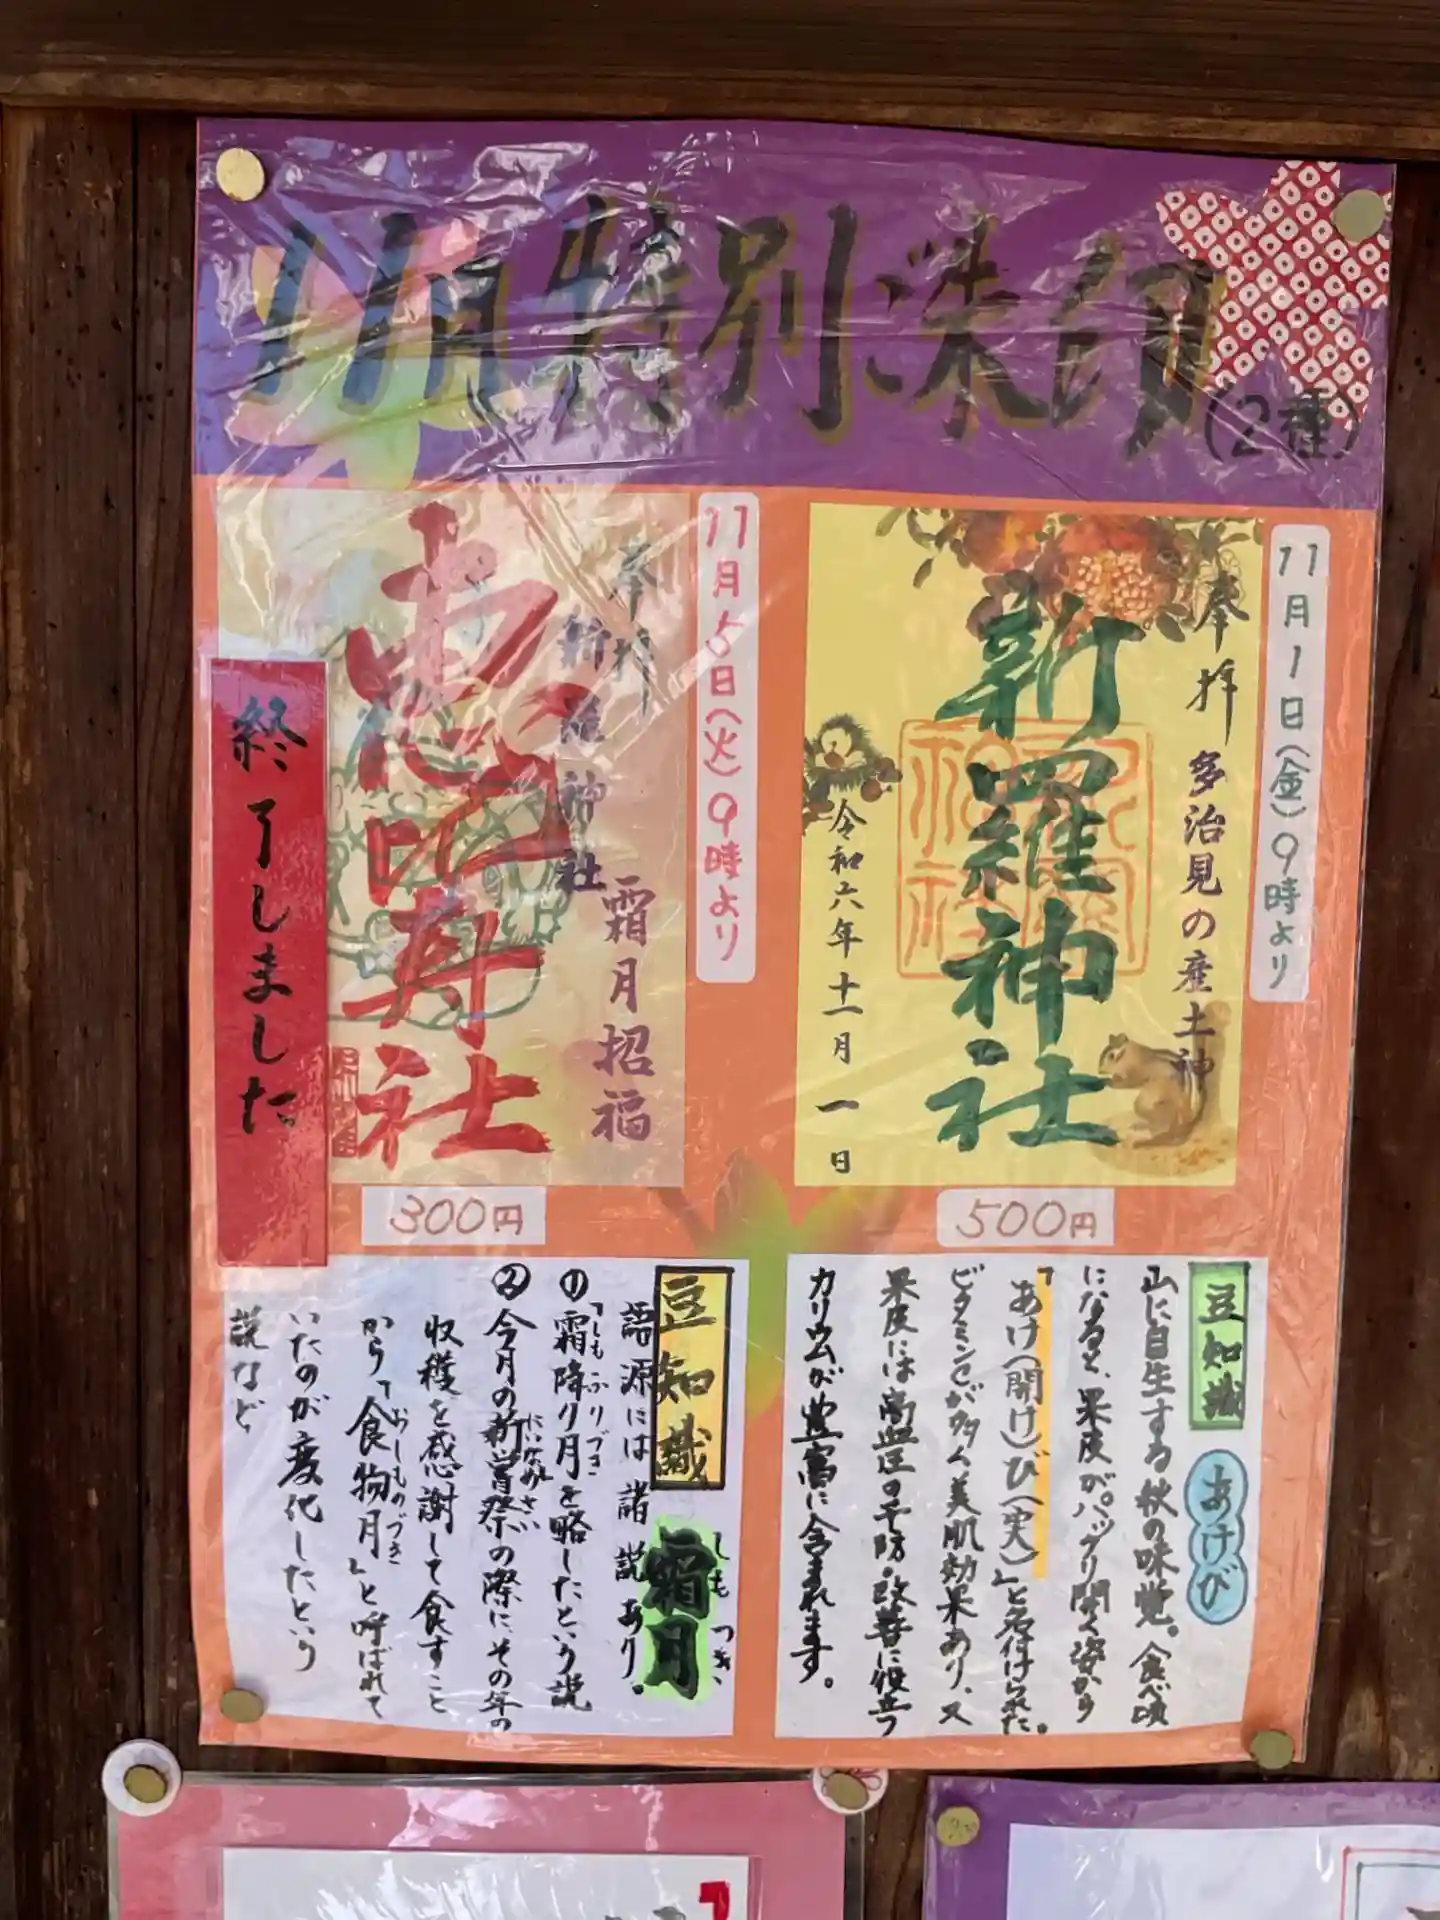 11月特別ご朱印
(2種)
11月1日(金)9時より
奉拝
多治見の産土神
新羅神社
令和六年十一月一日
500円
11月5日(火)9時より
奉拝
新羅神社
霜月招福
恵比寿社
終了しました
300円
豆知識
あけび
山に自生する秋の味覚。食べ頃
になると、果皮がパックリ開く姿から
「あけ(開け)び(実)」と名付けられた。
ビタミンCが多く美肌効果あり、ス
果皮には高血圧の予防・改善に役立つ
カリウムが豊富に含まれます。
豆知識
霜月
しもつき
語源には諸説あり。
①「霜降り月を略したという説
しもふりづき
②今月の新嘗祭の際にその年の
にいなめさい
収穫を感謝して食すこと
から「食物月」と呼ばれて
おしものづき
いたのが変化したという
説など